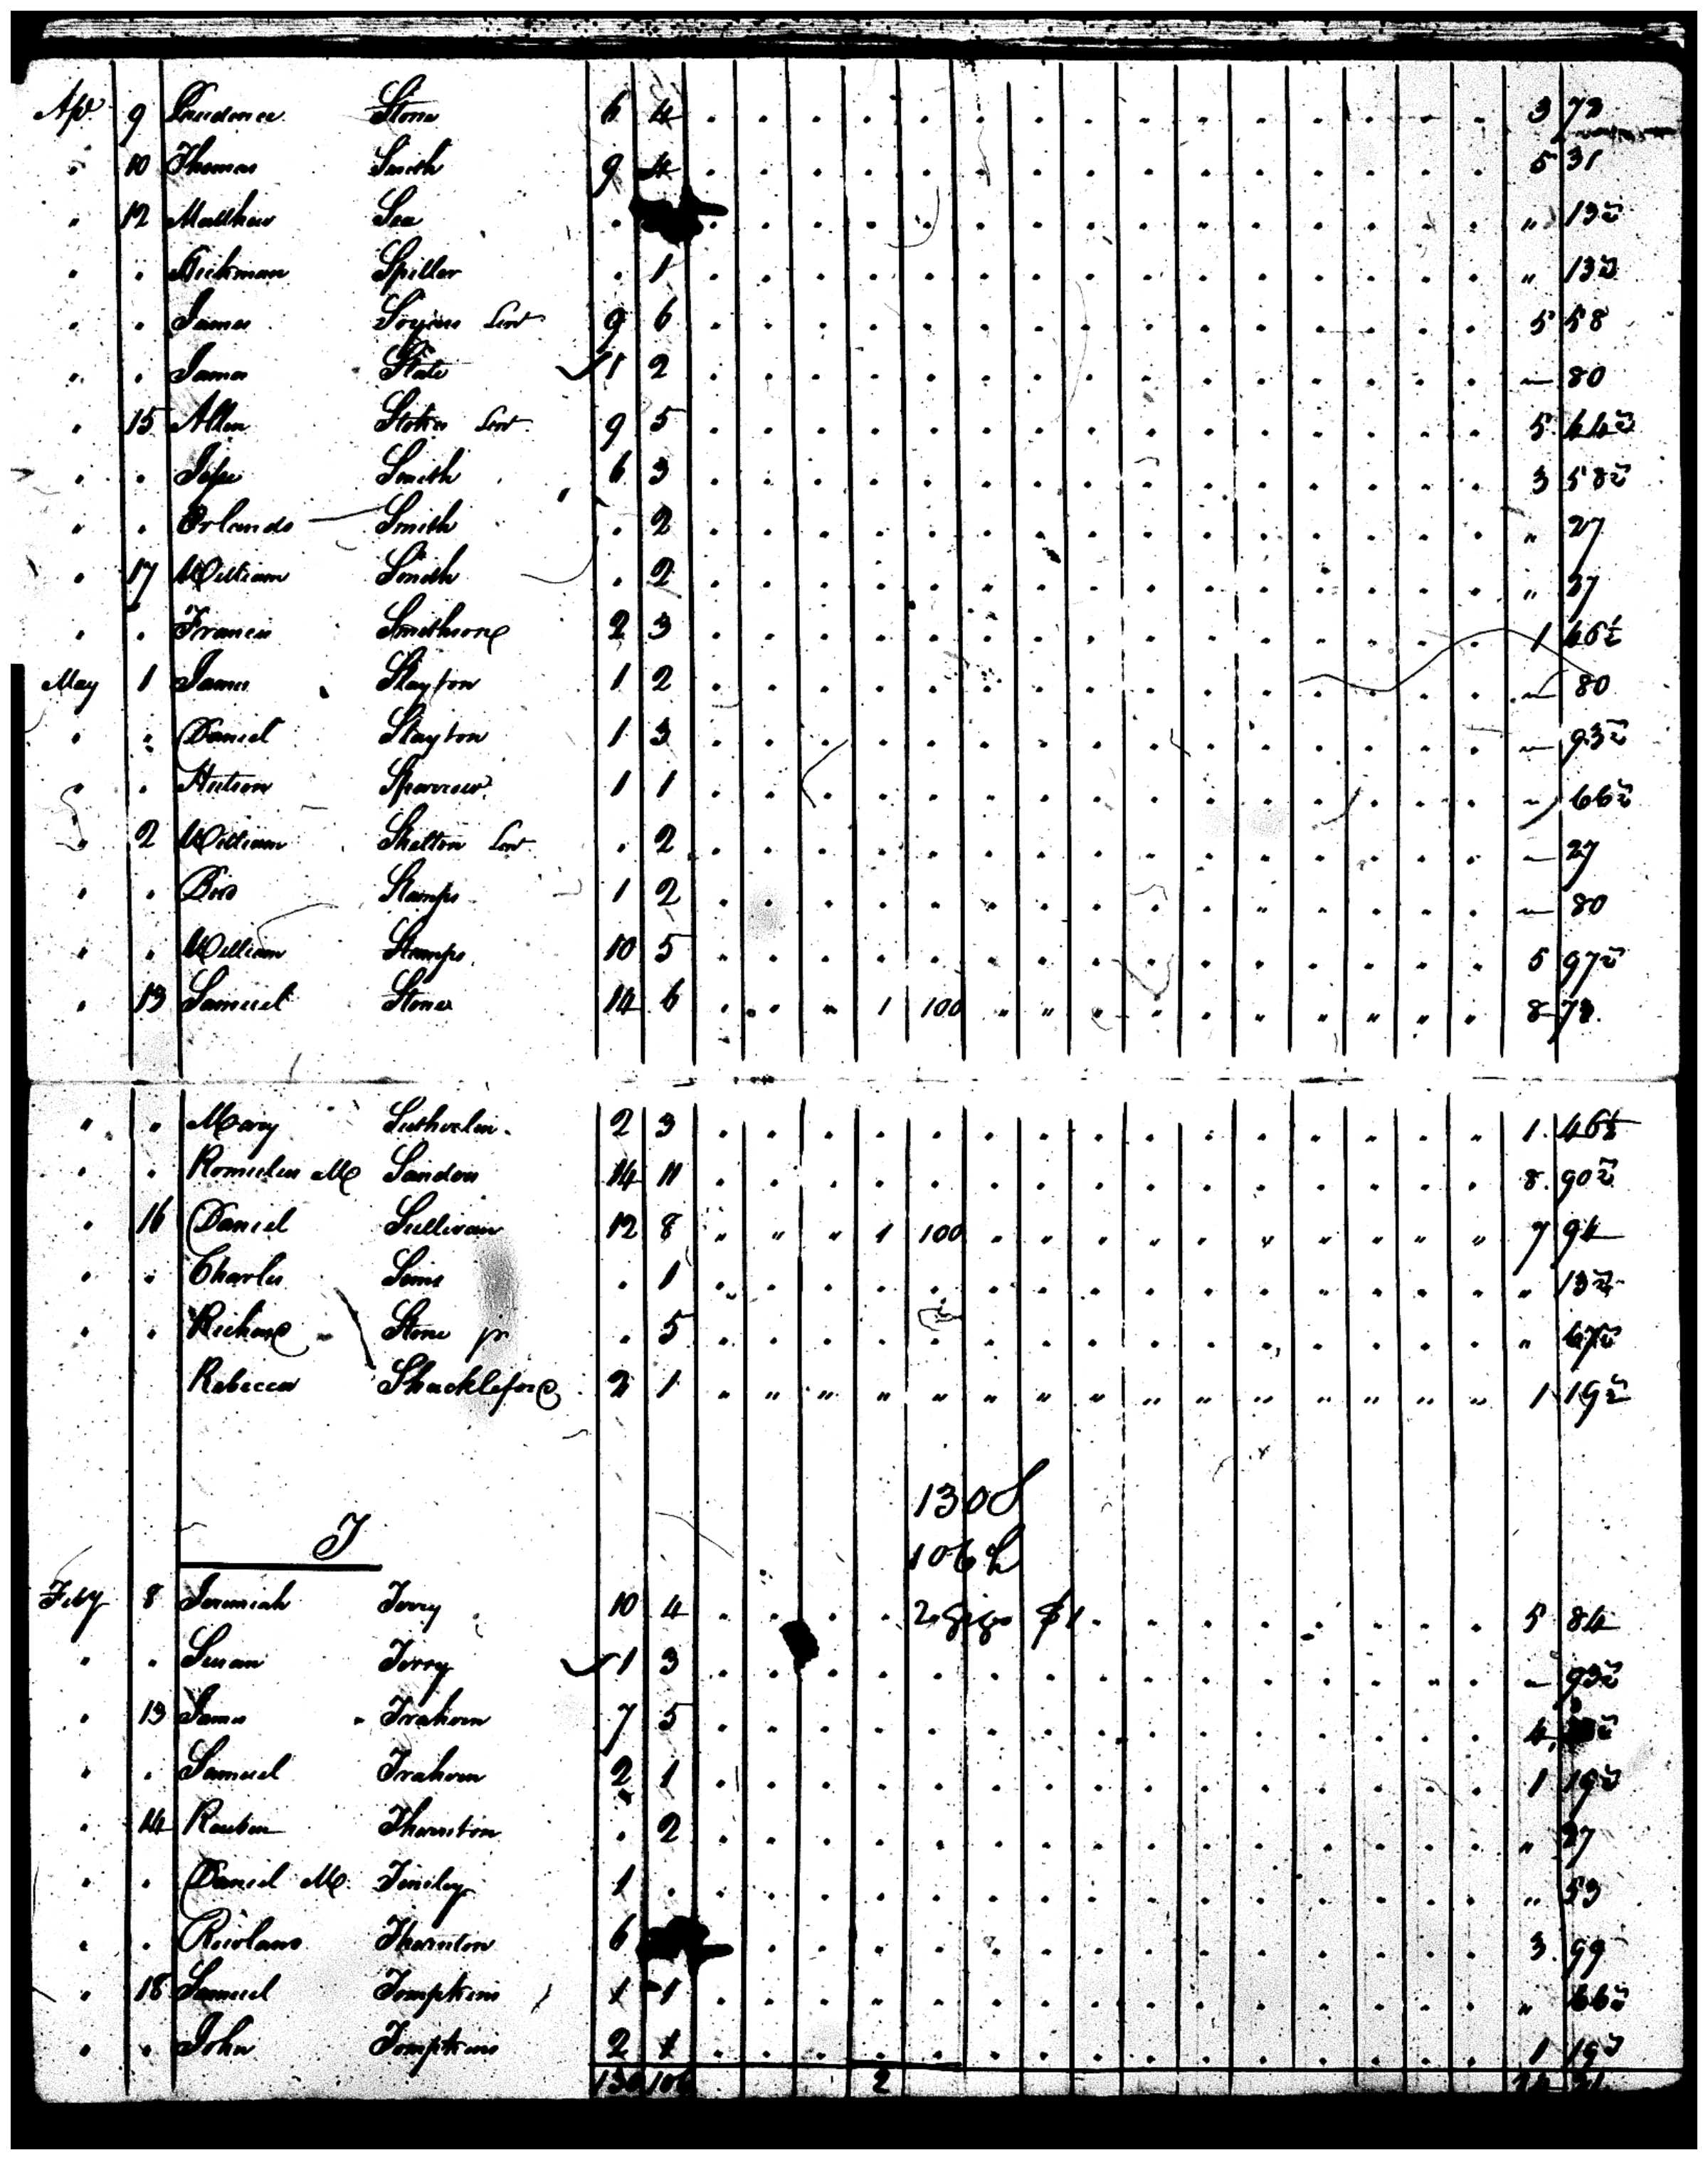 Ap 9 Prudence Stone 6 4 3 72
" 10 Thomas Smith 9 4 5 31
" 12 Matthew Sea " 13½
" " Hickman Spiller . 1 " 13½
" " James Soyars 9 6 5 58
" " James Slate 1 2 — 80
" 15 Allen Stokes 9 5 5 44½
" " Jesse Smith 6 3 3 58½
" " Orlando Smith . 2 " 27
" 17 William Smith . 2 " 27
" " Francis Smithson 2 3 1 46½
May 1 James Slayton 1 2 — 80
" " Daniel Slayton 1 3 — 93½
" " Hutson Sparrow 1 1 — 66½
" 2 William Shelton . 2 — 27
" " Bird Stamps 1 2 — 80
" " William Stamps 10 5 5 97½
" 13 Samuel Stone 14 6 " 1 100 " " " " " " " " " 8 73
" " Mary Sutherlin 2 3 1 46½
" " Romulus M Sanders 14 11 8 90½
" 16 Daniel Sullivan 12 8 " " " 1 100 " " " " " " " " " 7 94
" " Charles Sims . 1 " 13½
" " Richard Stone jr . 5 " 67½
Rebecca Shackleford 2 1 " " " " " " " " " " " " " " " 1 19½
130
106
T
Feby 8 Jeremiah Terry 10 4 2 gigs $1 5 84
" " Susan Terry 1 3 — 93½
" 13 James Trahern 7 5 4
" " Samuel Trahern 2 1 1 19½
" 14 Reuben Thornton . 2 " 27
" " Daniel M Tinsley 1 . " 53
" " Rowland Thornton 6 3 99
" 18 Samuel Tompkins 1 1 " 66½
" " John Tompkins 2 1 1 19½
130 106 2